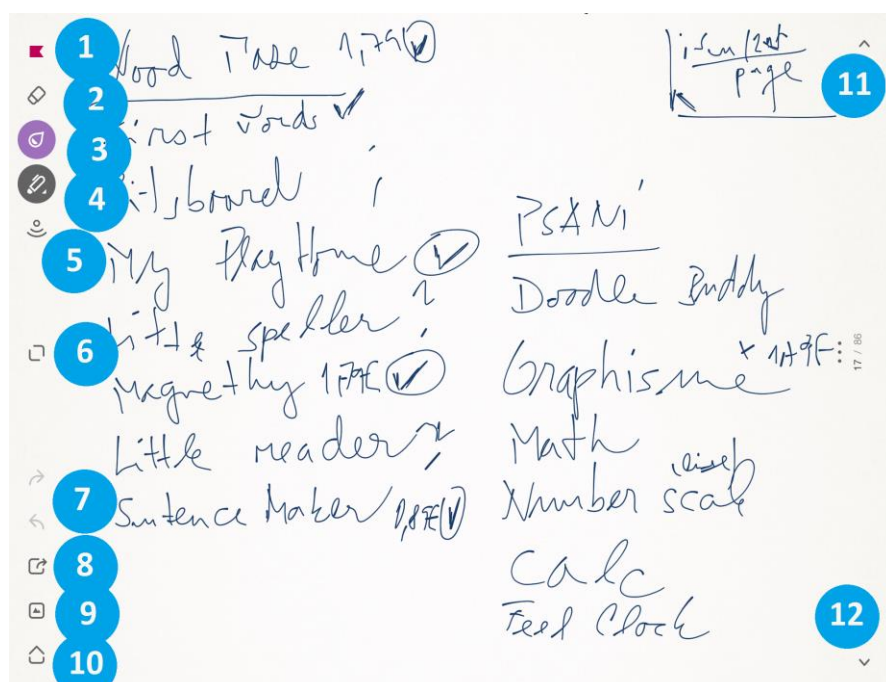 1
2
3
4
5
6
7
8
9
10
11
12
1,79€
First words
Bitsboard
My PlayHome
Little speller
Magnethy 1,79€
Little reader
Sentence Maker 0,89€
page
PSANÍ
Doodle Buddy
Graphisme + 1,79€
Math
Number scale
Calc
Feed Clock
17 / 86